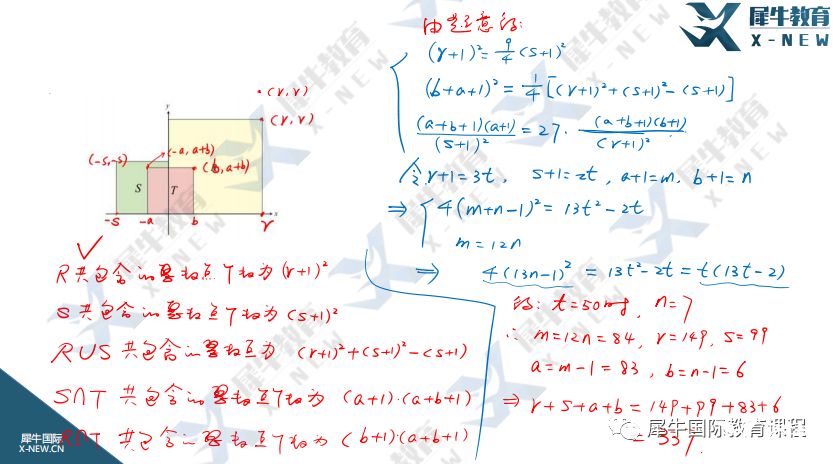 犀牛教育
X-NEW
由题意的:
(r+1)²=9/4(s+1)²
(b+a+1)²=1/4[(r+1)²+(s+1)²-(s+1)]
(a+b+1)(a+1)/(s+1)²=27·(a+b+1)(b+1)/(r+1)²
令r+1=3t, s+1=2t, a+1=m, b+1=n
⇒ 4(m+n-1)²=13t²-2t
m=12n
⇒ 4(13n-1)²=13t²-2t=t(13t-2)
的: t=50时, n=7
∴ m=12n=84, r=149, s=99
a=m-1=83, b=n-1=6
⇒ r+s+a+b=149+99+83+6
=337
•(r,r)
y
(r,r)
(-s,-s)
(-a,a+b)
(b,a+b)
S
T
-s
-a
b
r
x
R共包含的整数点个数为(r+1)²
S共包含的整数点个数为(s+1)²
RUS共包含的整数点为(r+1)²+(s+1)²-(s+1)
S∩T共包含的整数点个数为(a+1)·(a+b+1)
R∩T共包含的整数点个数为(b+1)(a+b+1)
犀牛国际
X-NEW.CN
犀牛国际教育课程